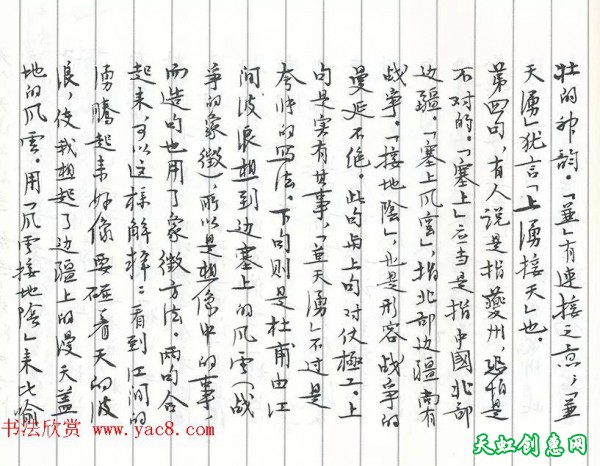 壮的神韵。「兼」有連接之意，「兼
天湧」犹言「上湧接天」也。
第四句，有人说是指夔州，恐怕是
不对的。「塞上」应当是指中國北部
边疆。「塞上风雲」，指北部边疆尚有
战事。「接地陰」，也是形容战争的
曼延不绝。此句与上句对仗極工。上
句是实有其事，「兼天湧」不过是
夸张的写法。下句则是杜甫由江
间波浪想到边塞上的风雲（战
争的象徵），所以是想像中的事，
而造句也用了象徵方法。两句合
起来，可以这样解释：看到江间的
湧腾起来好像要碰着天的波
浪，使我想起了边疆上的漫天盖
地的风雲。用「风雲接地陰」来比喻
书法欣赏 www.yac8.com
天虹创惠网